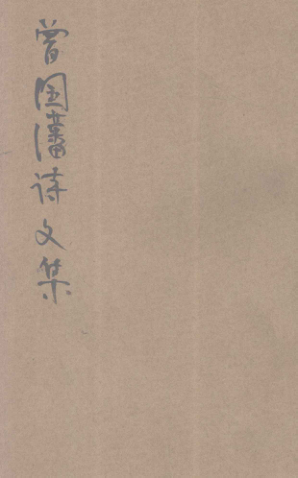 曾国藩诗文集